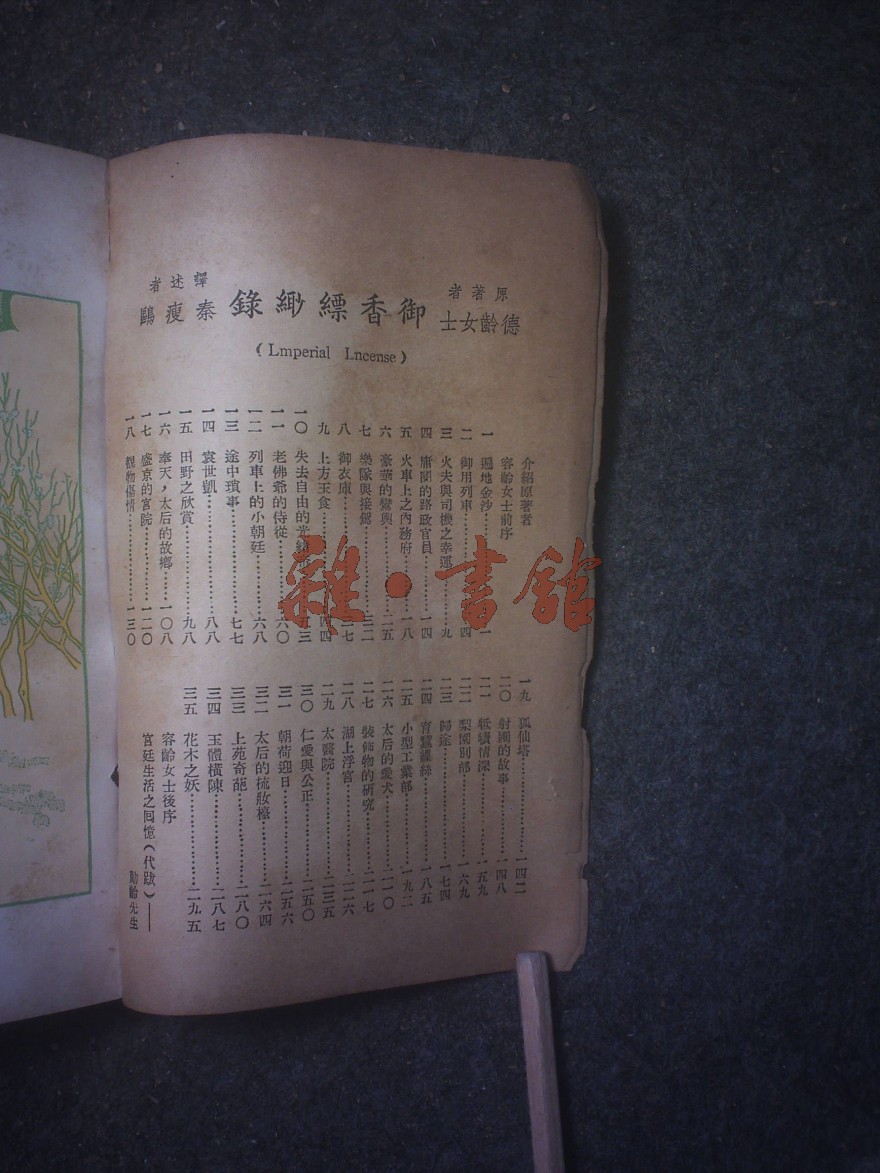 原著者
德齡女士
御香縹緲錄
譯述者
秦瘦鷗
(Lmperial Lncense)
介紹原著者
容齡女士前序
一 遍地金沙……一
二 御用列車……四
三 火夫與司機之幸運……九
四 庸闒的路政官員……一四
五 火車上之內務府……一八
六 豪華的鸞輿……二五
七 樂隊與接駕……三二
八 御衣庫……七
九 上方玉食……四四
一〇 失去自由的光緒……五三
一一 老佛爺的侍從……六〇
一二 列車上的小朝廷……六八
一三 途中瑣事……七七
一四 袁世凱……八八
一五 田野之欣賞……九八
一六 奉天，太后的故鄉……一〇八
一七 盛京的宮院……一二〇
一八 覩物傷情……一三〇
一九 狐仙塔……一四二
二〇 射圃的故事……一四八
二一 舐犢情深……一五九
二二 梨園別部……一六九
二三 歸途……一七四
二四 育蠶繅絲……一八五
二五 小型工業部……一九二
二六 太后的愛犬……二一〇
二七 裝飾物的研究……二一七
二八 湖上浮宮……二二六
二九 太醫院……二三五
三〇 仁愛與公正……二五〇
三一 朝荷迎日……二五六
三二 太后的梳妝檯……二六四
三三 上苑奇葩……二八〇
三四 玉體橫陳……二八七
三五 花木之妖……二九五
容齡女士後序
宮廷生活之回憶（代跋）——
勛齡先生
雜·書館